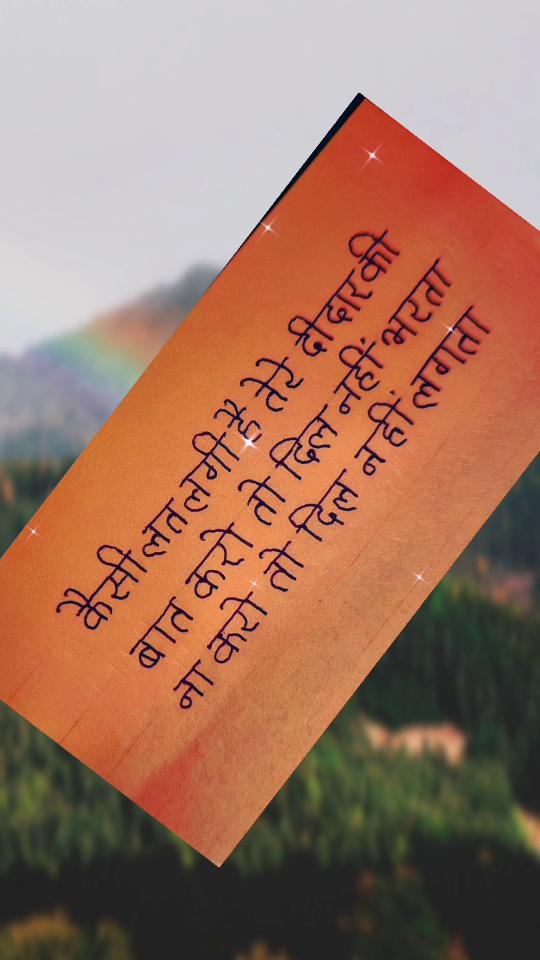 कैसी लत लगी है तेरे दीदार की
बात करो तो दिल नहीं भरता
ना करो तो दिल नहीं लगता